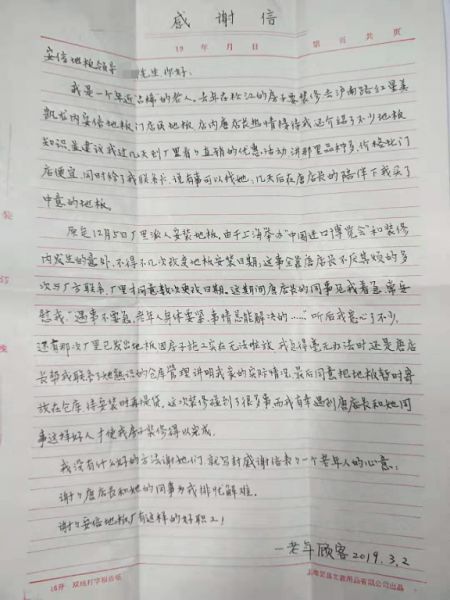 感谢信
19 年 月 日 第 页 共 页
安信地板领导 先生你好:
我是一个年近 的老人。去年在松江的房子要装修去沪南路红星美
凯龙内安信地板门店选地板,店内唐店长热情接待我还介绍了不少地板
知识並建议我过几天到厂里看看直销的优惠活动,讲那里品种多,价格比门
店便宜,同时给了我联系卡,说有事可以找她,几天后在唐店长的陪伴下我买了
中意的地板。
原定12月5日厂里派人安装地板,由于上海举办"中国进口博览会"和装修
内发生的意外,不得不几次改变地板安装日期,这事全靠唐店长不厌其烦的多
次与厂方联系,厂里才同意数次更改日期。这期间唐店长的同事见我着急,常安
慰我"遇事不要急,老年人身体要紧,事情总能解决的……"听后我宽心了不少。
还有那次厂里已发出地板因房子施工实在无法堆放,我急得毫无办法时还是唐店
长帮我联系了她熟识的仓库管理讲明我家的实际情况,最后同意把地板暂时寄
放在仓库,待安装时再提货。这次装修碰到了很多事而我有幸遇到唐店长和她同
事这样好人才使我房子装修得以完成。
我没有什么好的方法谢她们,就写封感谢信表表一个老年人的心意:
谢谢唐店长和她的同事为我排忧解难。
谢谢安信地板厂有这样的好职工!
一老年顾客 2019.3.2
16开 双线打字报告纸